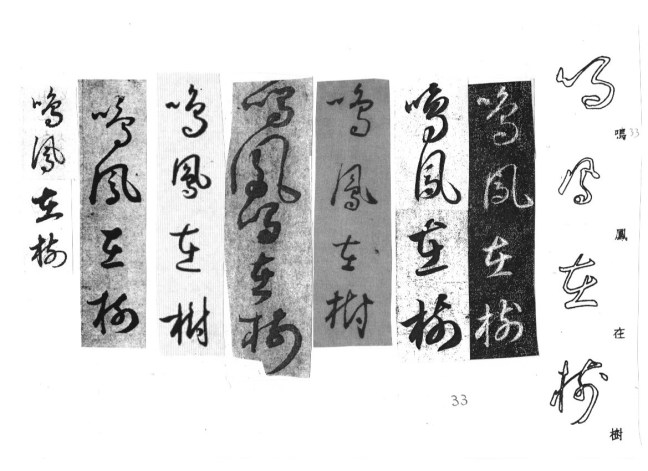 鳴33鳳在樹
鳴鳳在樹
鳴鳳在樹
鳴鳳在樹
鳴鳳在樹
鳴鳳鳴在樹
鳴鳳在樹
鳴鳳在樹
鳴鳳在樹
33